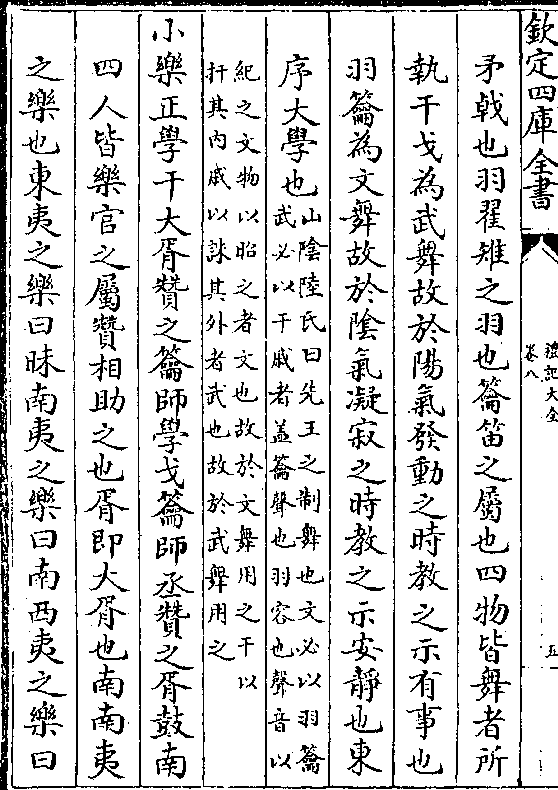 欽定四庫全書
禮記大全
卷八
五
矛戟也羽翟雉之羽也籥笛之屬也四物皆舞者所
執干戈為武舞故於陽氣發動之時教之示有事也
羽籥為文舞故於陰氣凝寂之時教之示安靜也東
序大學也
山陰陸氏曰先王之制舞也文必以羽籥
武必以干戚者蓋籥聲也羽容也聲音以
紀之文物以昭之者文也故於文舞用之干以
扞其内戚以誅其外者武也故於武舞用之
小樂正學干大胥贊之籥師學戈籥師丞贊之胥鼓南
四人皆樂官之屬贊相助之也胥即大胥也南南夷
之樂也東夷之樂曰昧南夷之樂曰南西夷之樂曰